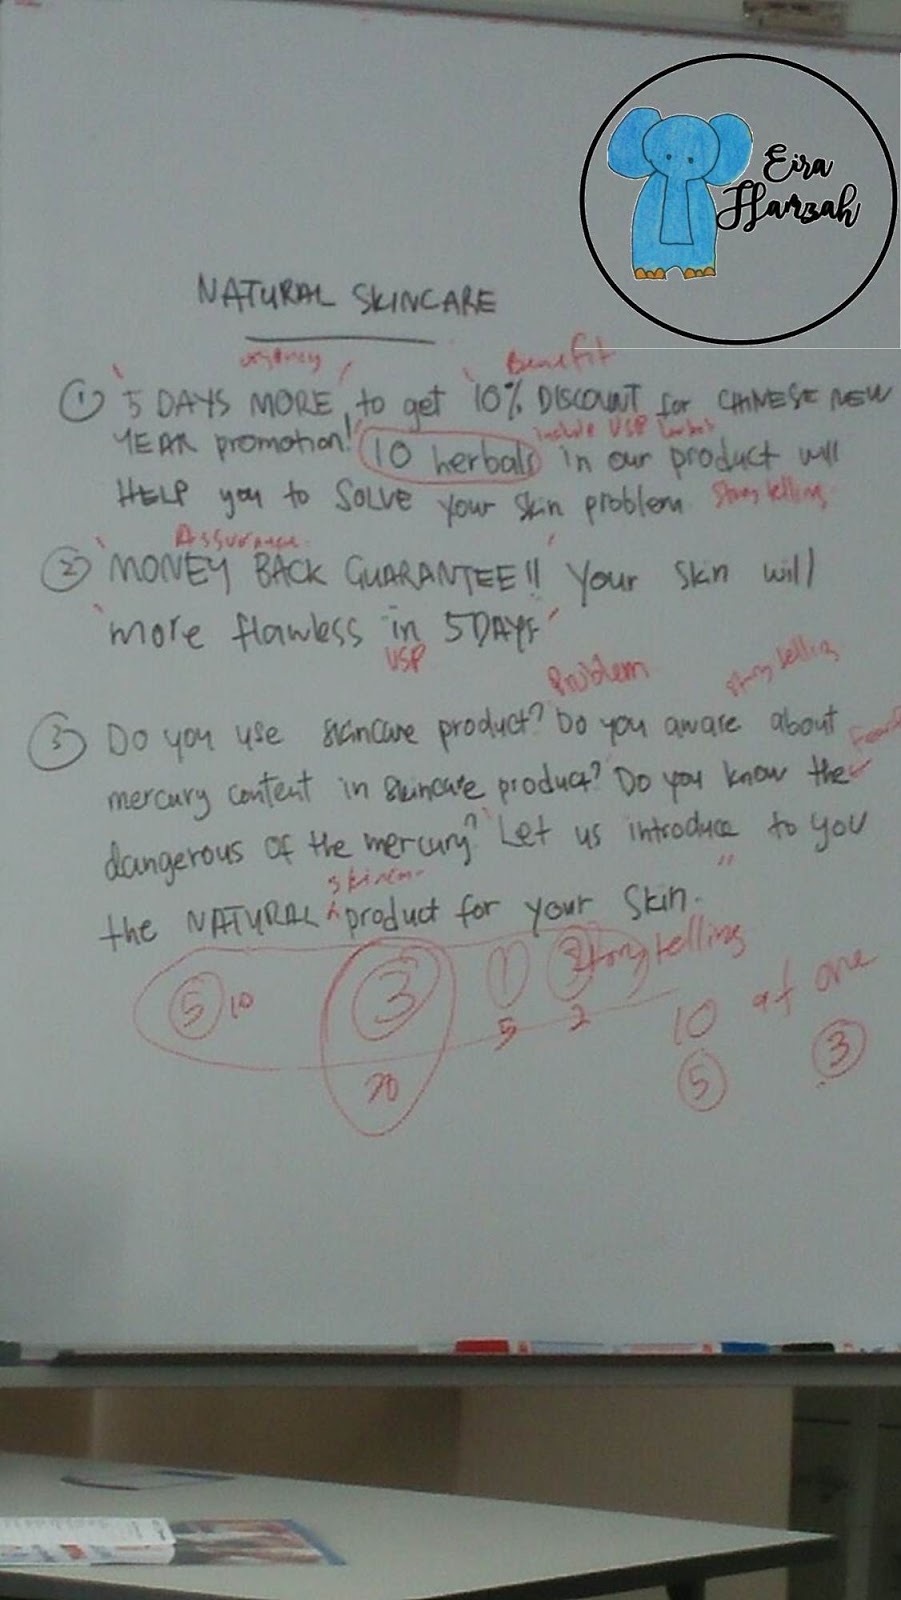 Eira
Hamzah
NATURAL SKINCARE
urgency Benefit
① "5 DAYS MORE" to get "10% DISCOUNT for CHINESE NEW
YEAR promotion!" 10 herbals in our product will
include USP herbals
HELP you to SOLVE your skin problem. Story telling
Assurance
② "MONEY BACK GUARANTEE!!" Your skin will
"more flawless in 5 DAYS"
USP
Problem Story telling
③ Do you use skincare product? Do you aware about
mercury content in skincare product? Do you know the
dangerous of the mercury? Let us introduce to you
the NATURAL product for your skin.
Storytelling
5 10 3 1
20 5 2 10 at one
5 3